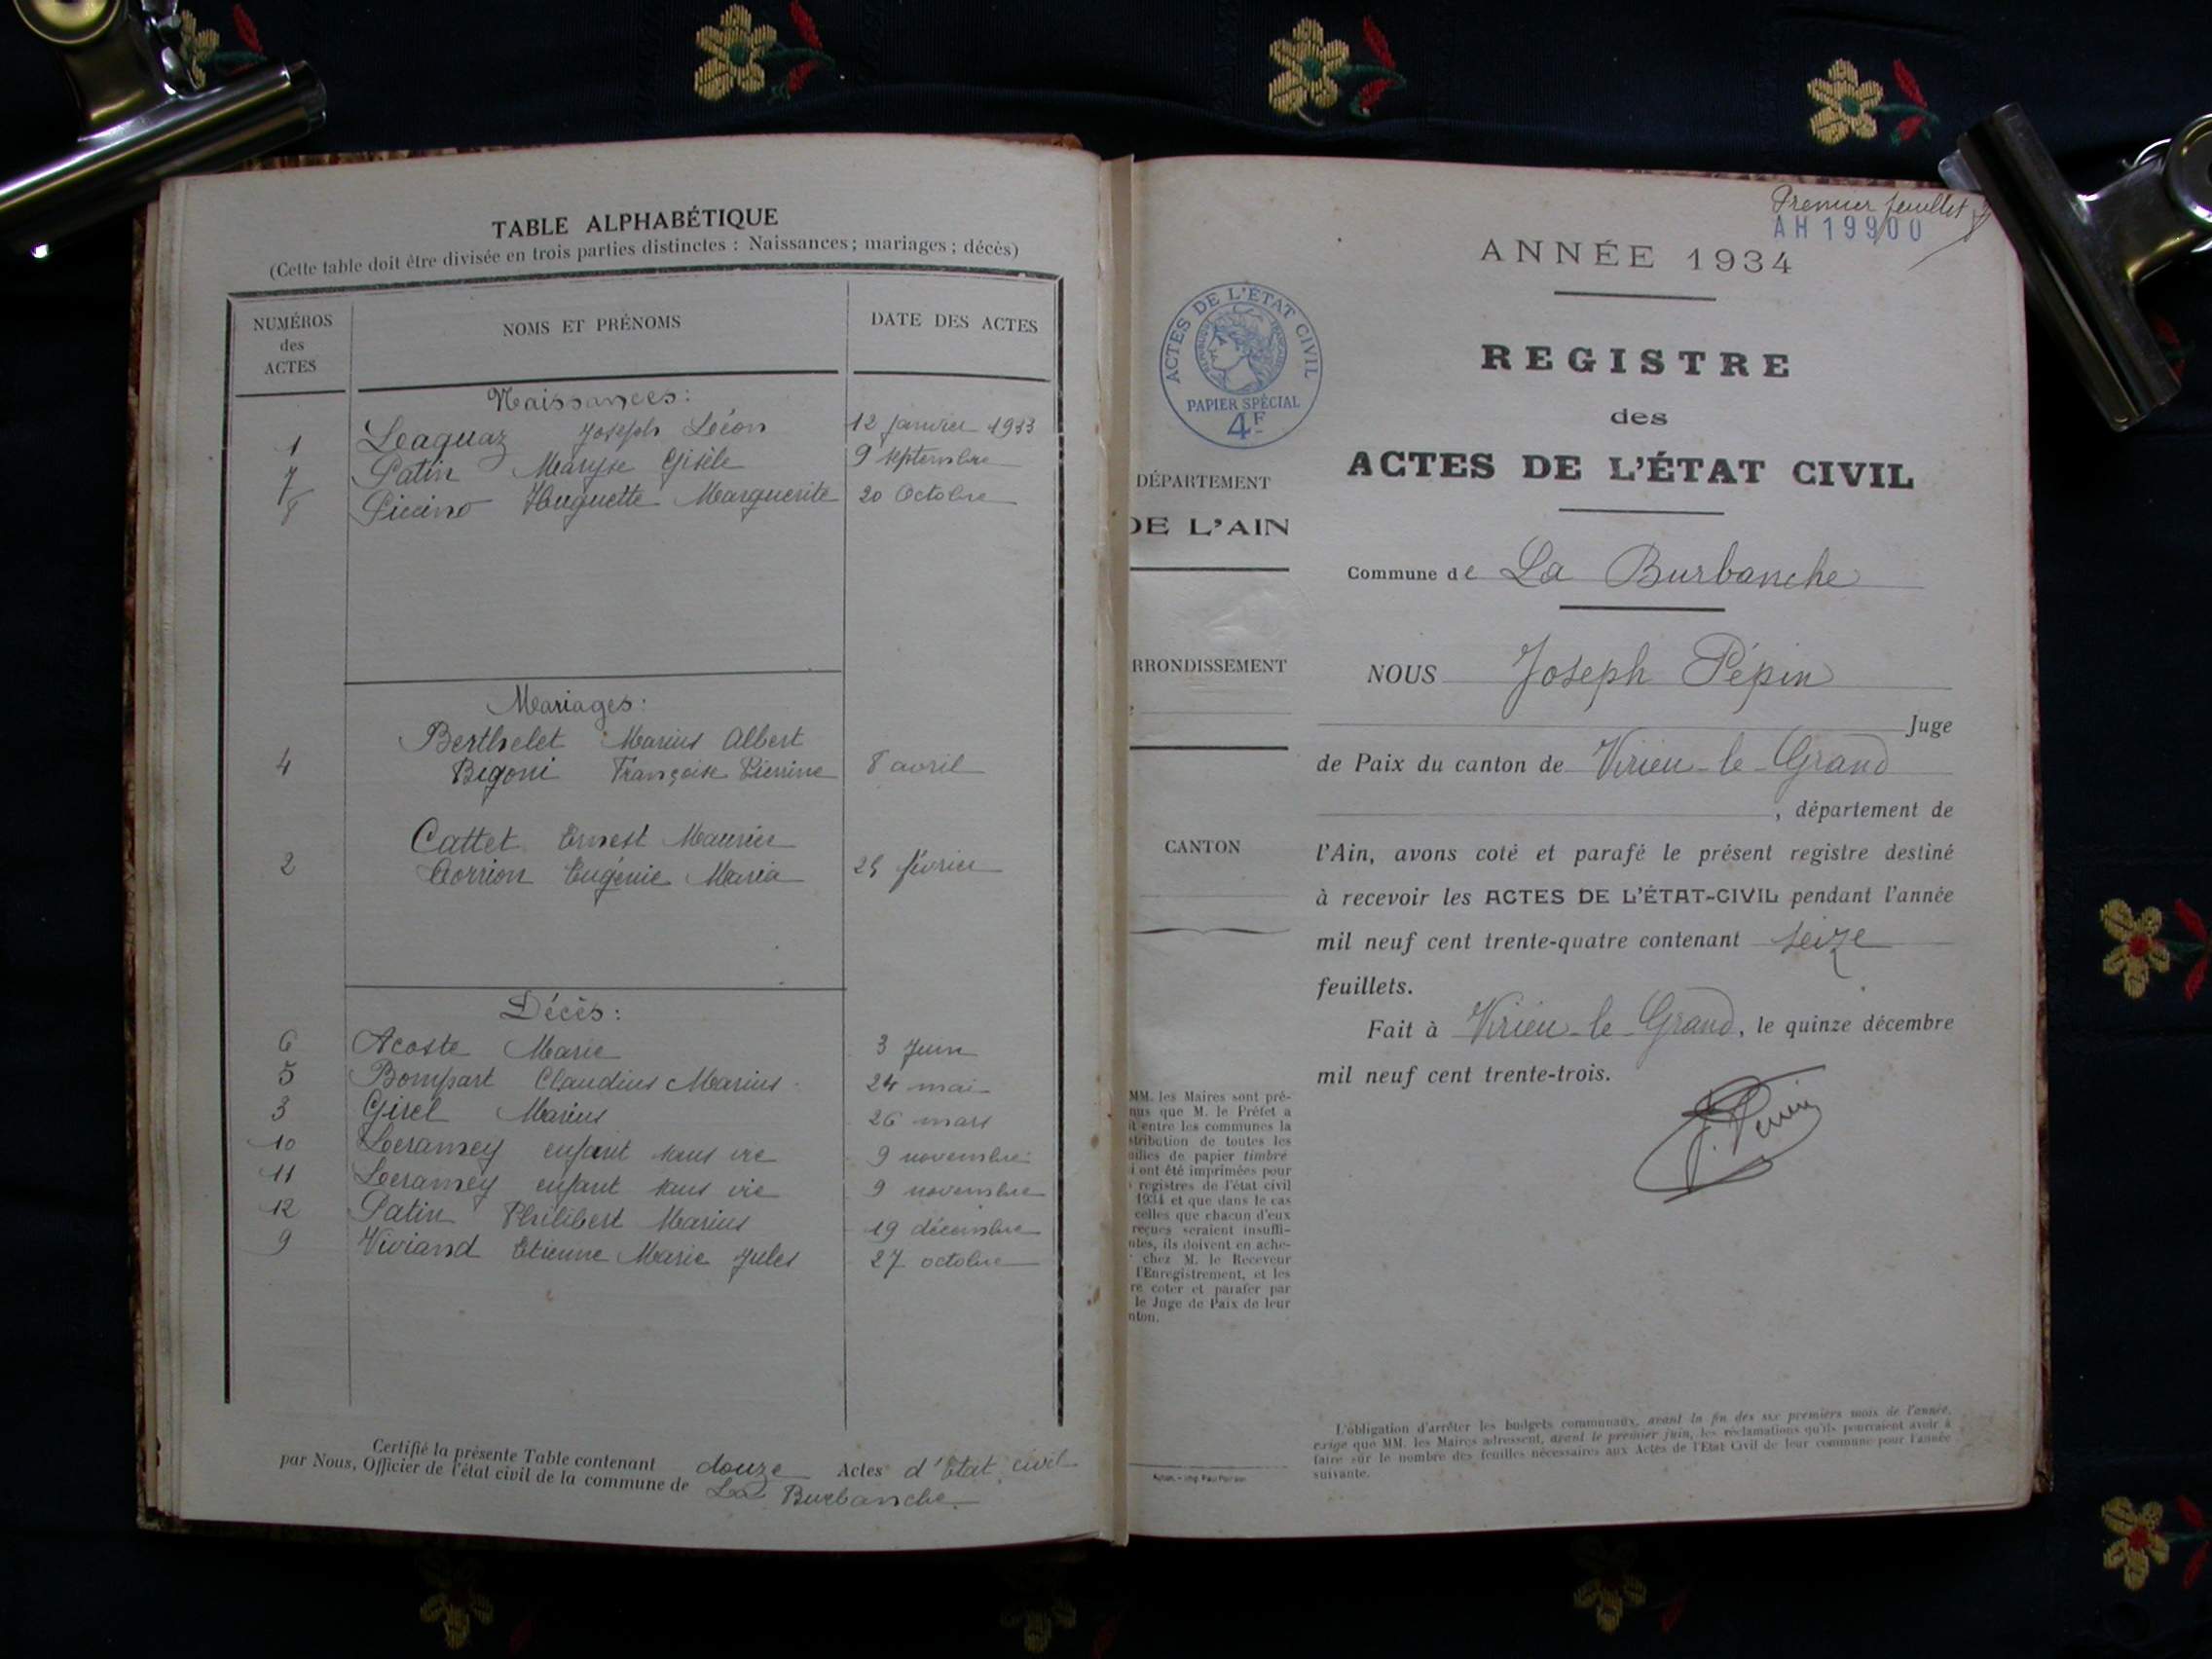 TABLE ALPHABÉTIQUE
(Cette table doit être divisée en trois parties distinctes : Naissances ; mariages ; décès)
NUMÉROS des ACTES NOMS ET PRÉNOMS DATE DES ACTES
Naissances :
1 Joseph Léon 12 janvier 1933
7 Patin Maryse Gisèle 9 septembre
8 Huguette Marguerite 20 Octobre
Mariages :
Berthelet Marius Albert
4 Bigoni Françoise Pierrine 8 avril
Cattet Ernest Maurice
2 Eugénie Maria 25 février
Décès :
6 Acoste Marie 3 Juin
5 Bompart Claudius Marius 24 mai
3 Girel Marius 26 mars
10 enfant sans vie 9 novembre
11 enfant sans vie 9 novembre
12 Patin Philibert Marius 19 décembre
9 Viviand Etienne Marie Jules 27 octobre
Certifié la présente Table contenant douze Actes d'Etat civil
par Nous, Officier de l'état civil de la commune de La Burbanche
Premier feuillet
AH 19900
ANNÉE 1934
ACTES DE L'ÉTAT CIVIL
RÉPUBLIQUE FRANÇAISE
PAPIER SPÉCIAL
4F
REGISTRE
des
ACTES DE L'ÉTAT CIVIL
DÉPARTEMENT
DE L'AIN
RRONDISSEMENT
CANTON
Commune de La Burbanche
NOUS Joseph Pépin
Juge
de Paix du canton de Virieu-le-Grand
, département de
l'Ain, avons coté et parafé le présent registre destiné
à recevoir les ACTES DE L'ÉTAT-CIVIL pendant l'année
mil neuf cent trente-quatre contenant seize
feuillets.
Fait à Virieu-le-Grand, le quinze décembre
mil neuf cent trente-trois.
J. Pépin
MM. les Maires sont pré-
nus que M. le Préfet a
it entre les communes la
stribution de toutes les
uilles de papier timbré
i ont été imprimées pour
s registres de l'état civil
1934 et que dans le cas
celles que chacun d'eux
reçues seraient insuffi-
ntes, ils doivent en ache-
r chez M. le Receveur
l'Enregistrement, et les
re coter et parafer par
le Juge de Paix de leur
nton.
L'obligation d'arrêter les budgets communaux, avant la fin des six premiers mois de l'année,
exige que MM. les Maires adressent, avant le premier juin, les réclamations qu'ils pourraient avoir à
faire sur le nombre des feuilles nécessaires aux Actes de l'Etat Civil de leur commune pour l'année
suivante.